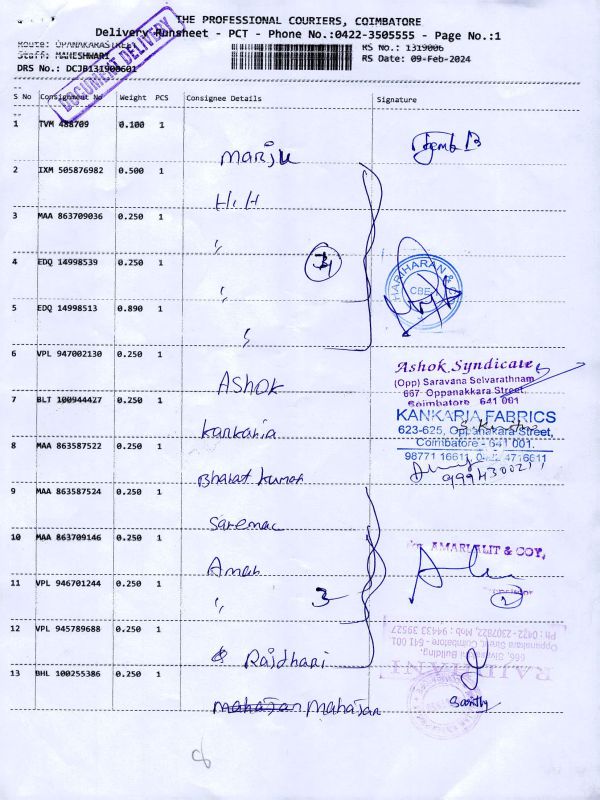 THE PROFESSIONAL COURIERS, COIMBATORE
Delivery Runsheet - PCT - Phone No.:0422-3505555 - Page No.:1
Route: OPANAKARASTREET
RS No.: 1319006
Staff: MAHESHWARI
RS Date: 09-Feb-2024
DRS No.: DCJB131900601
DOCUMENT DELIVERY
S No Consignment No Weight PCS Consignee Details Signature
1 TVM 488709 0.100 1
Marju
2 IXM 505876982 0.500 1
H.H
3 MAA 863709036 0.250 1
"
4 EDQ 14998539 0.250 1
"
HARIHARAN & CO
CBE
5 EDQ 14998513 0.890 1
"
6 VPL 947002130 0.250 1
Ashok
Ashok Syndicate
(Opp) Saravana Selvarathnam
667 Oppanakkara Street,
Coimbatore 641 001
7 BLT 100944427 0.250 1
Kankaria
KANKARIA FABRICS
623-625, Oppanakara Street,
Coimbatore - 641 001.
98771 16611, 0422 4716611
8 MAA 863587522 0.250 1
Bharat kumar
9 MAA 863587524 0.250 1
Saremac
10 MAA 863709146 0.250 1
Amar
AMARLALIT & COY,
11 VPL 946701244 0.250 1
"
3
2
12 VPL 945789688 0.250 1
Rajdhani
RAJDHANI
666, Sivasami Building,
Oppanakara Street, Coimbatore - 641 001
Ph : 0422 - 2307822, Mob : 94433 39527
13 BHL 100255386 0.250 1
mahajan Mahajan
8